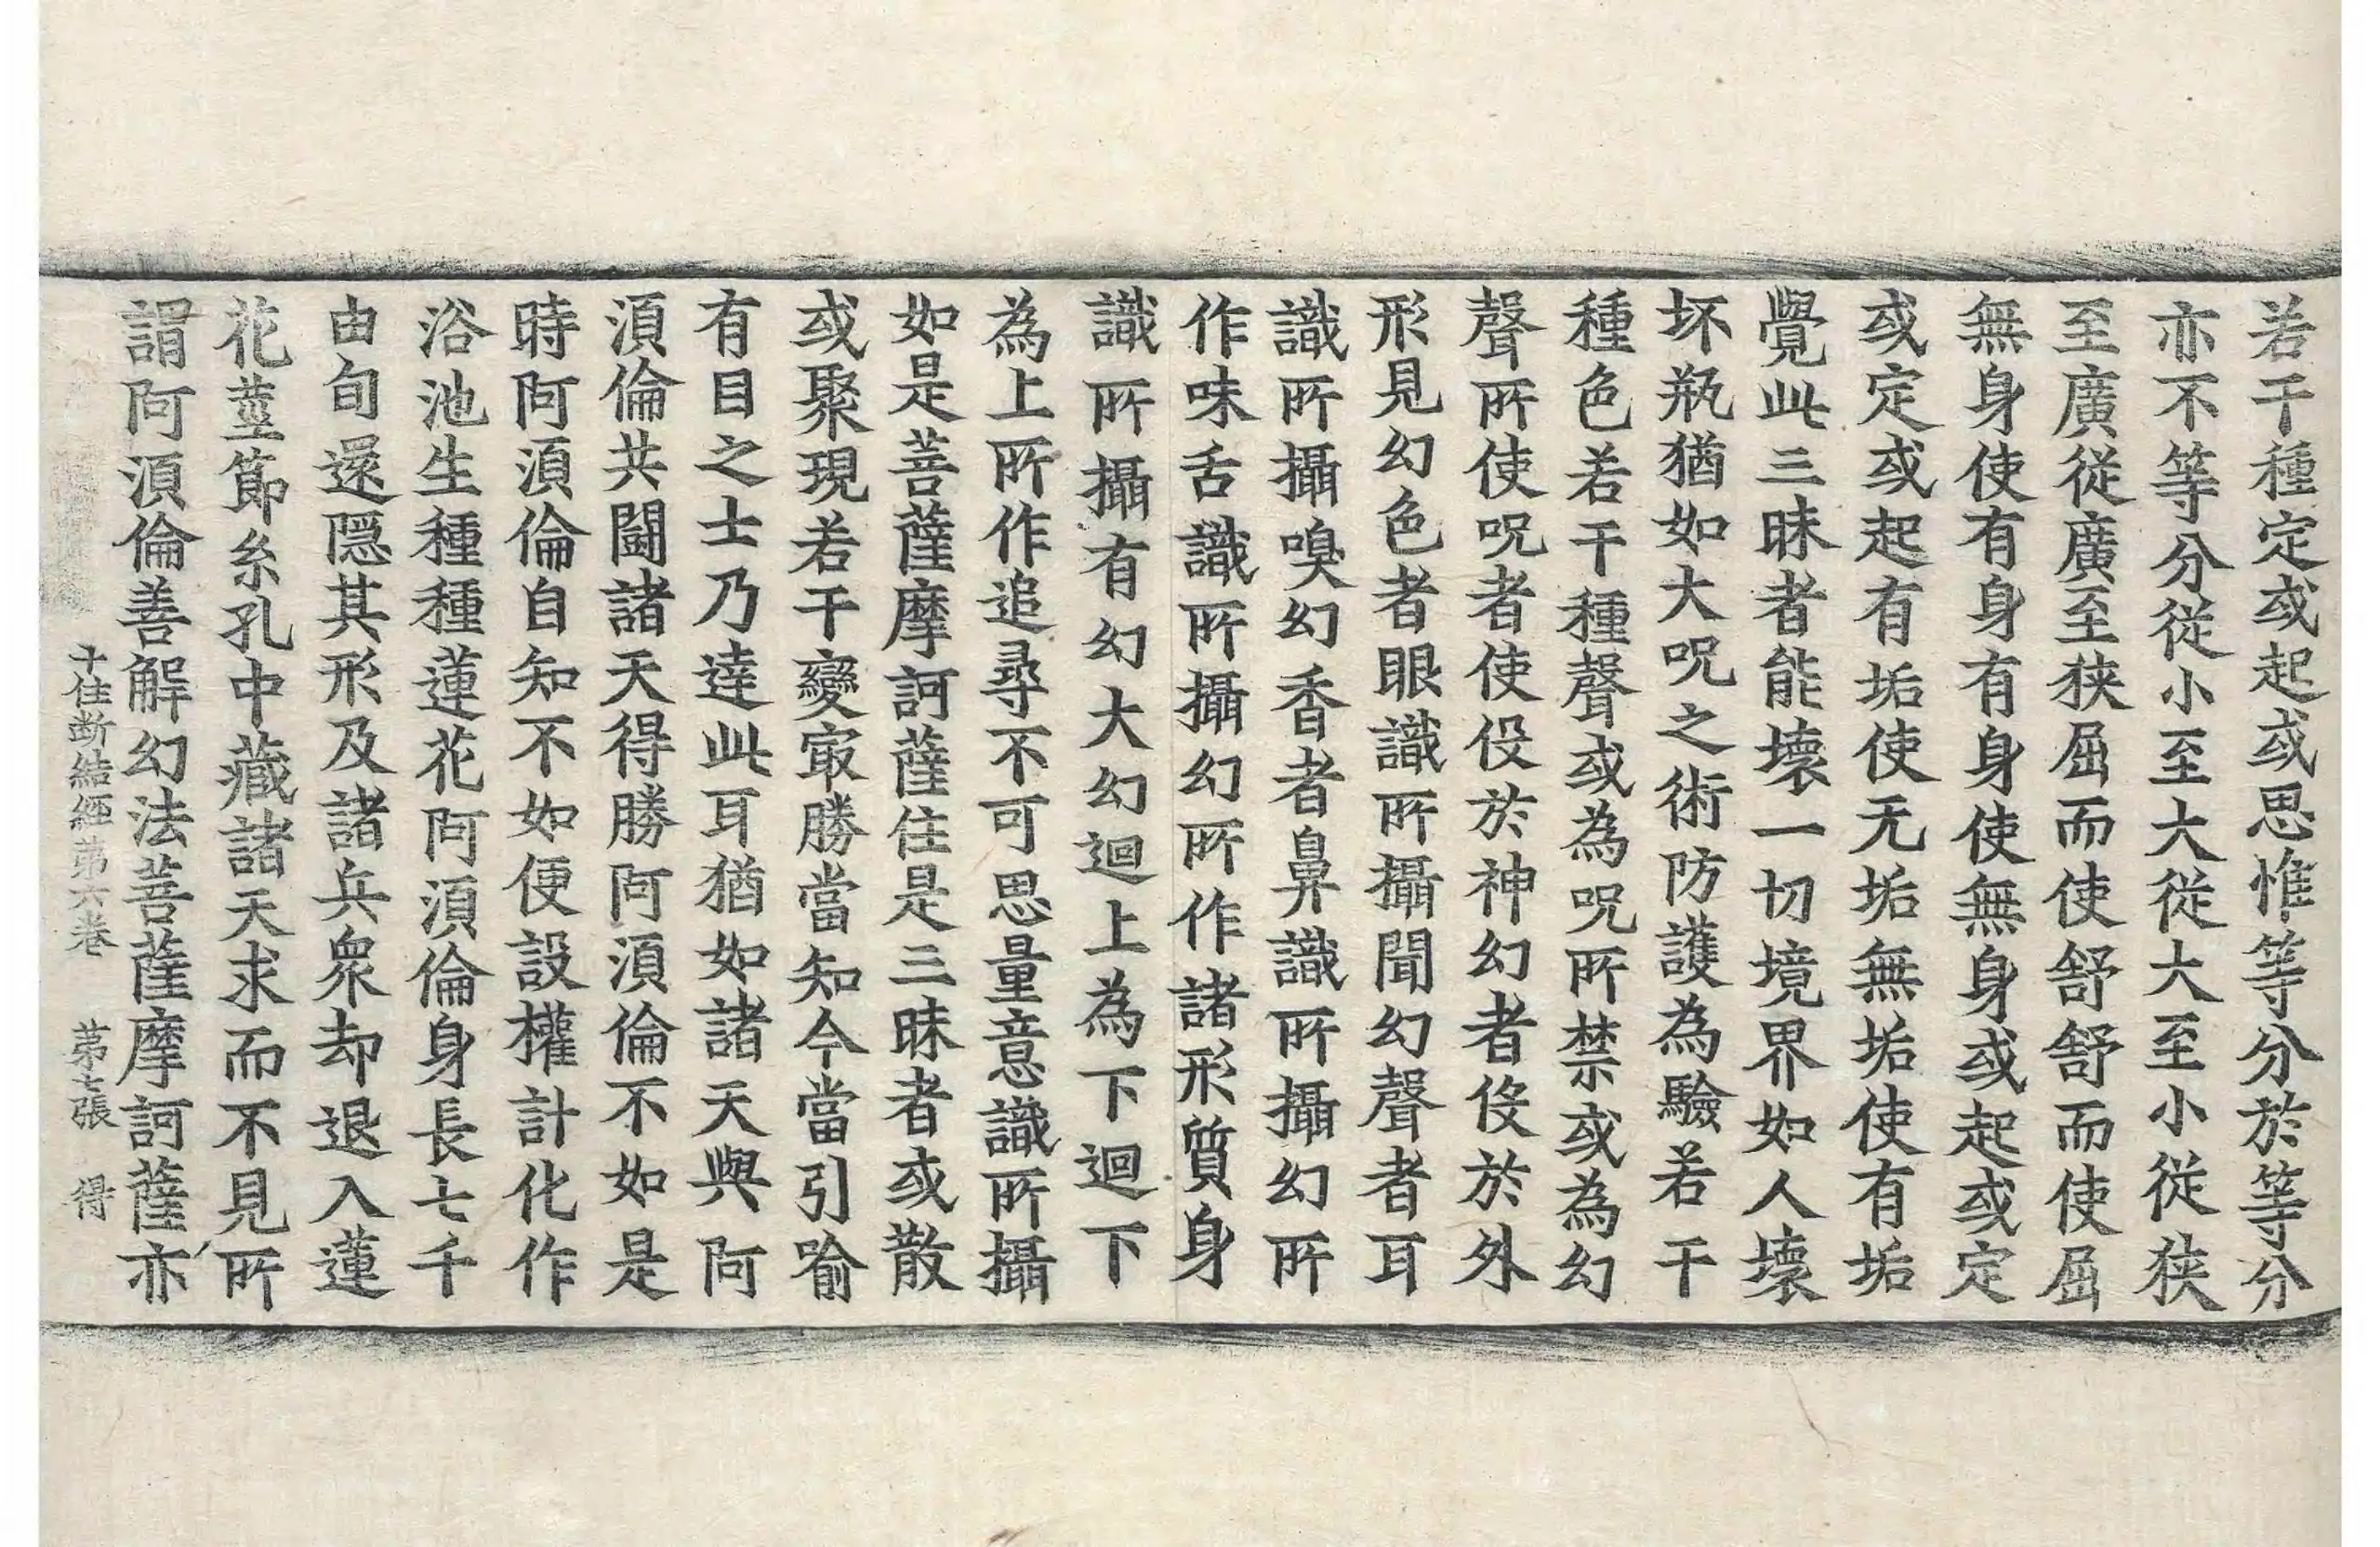 若干種定或起或思惟等分於等分
亦不等分從小至大從大至小從狹
至廣從廣至狹屈而使舒舒而使屈
無身使有身有身使無身或起或定
或定或起有垢使无垢無垢使有垢
覺此三昧者能壞一切境界如人壞
坏瓶猶如大呪之術防護為驗若干
種色若干種聲或為呪所禁或為幻
聲所使呪者使役於神幻者伇於外
形見幻色者眼識所攝聞幻聲者耳
識所攝嗅幻香者鼻識所攝幻所
作味舌識所攝幻所作諸形質身
識所攝有幻大幻迴上為下迴下
為上所作追尋不可思量意識所攝
如是菩薩摩訶薩住是三昧者或散
或聚現若干變㝡勝當知今當引喻
有目之士乃達此耳猶如諸天與阿
湏倫共鬪諸天得勝阿湏倫不如是
時阿湏倫自知不如便設權計化作
浴池生種種蓮花阿湏倫身長七千
由旬還隱其形及諸兵衆却退入蓮
花莖節糸孔中藏諸天求而不見所
謂阿湏倫善解幻法菩薩摩訶薩亦
十住断結經第六卷　第七張　得